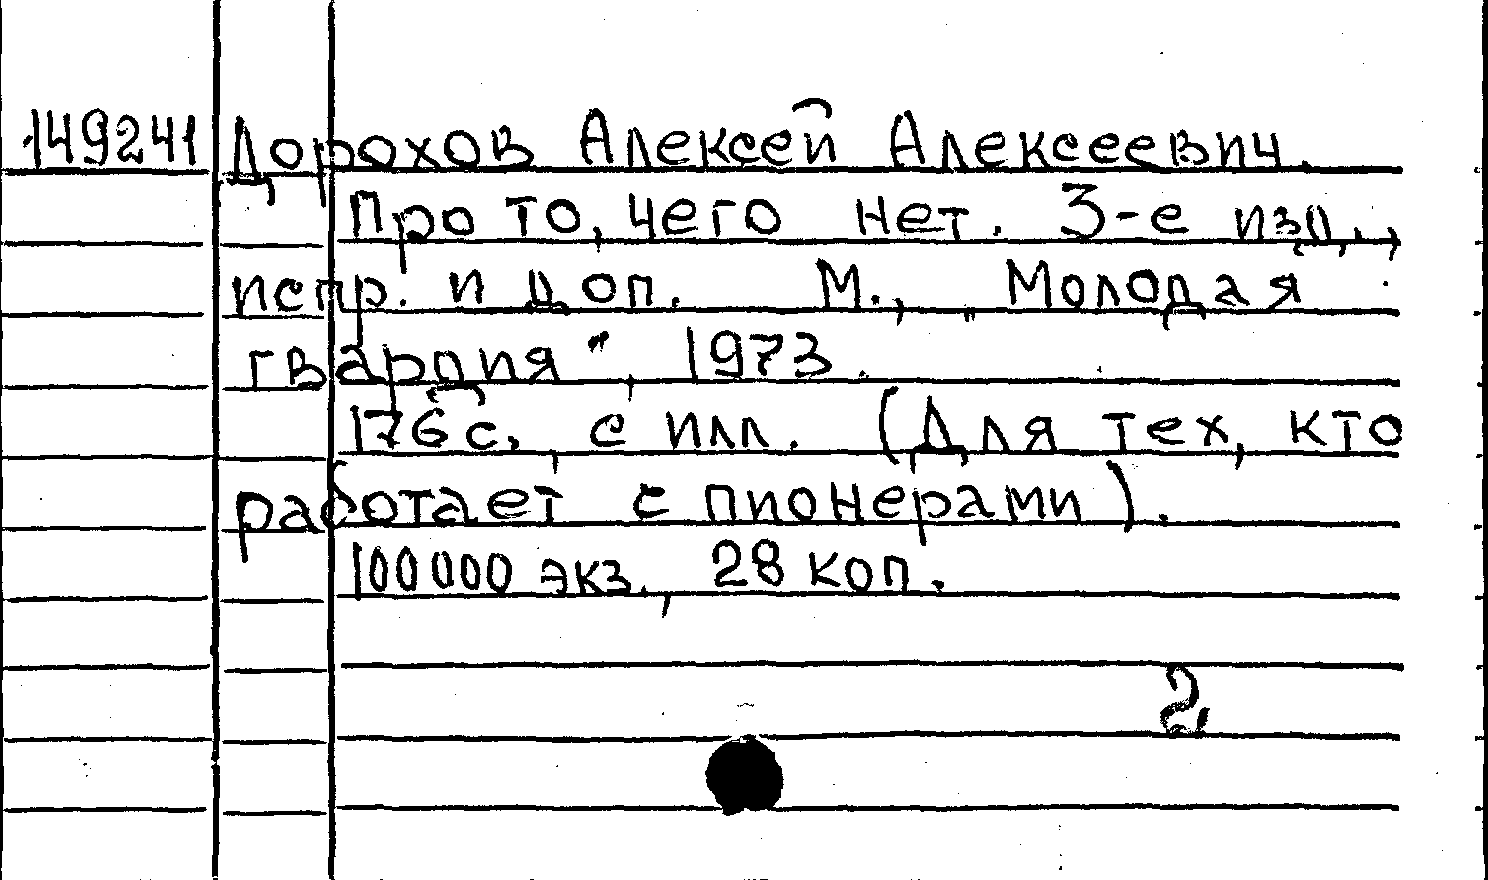 149241 Дорохов Алексей Алексеевич.
Про то, чего нет. 3-е изд.,
испр. и доп. М., „Молодая
гвардия", 1973.
176 с., с илл. (Для тех, кто
работает с пионерами).
100000 экз., 28 коп.
2